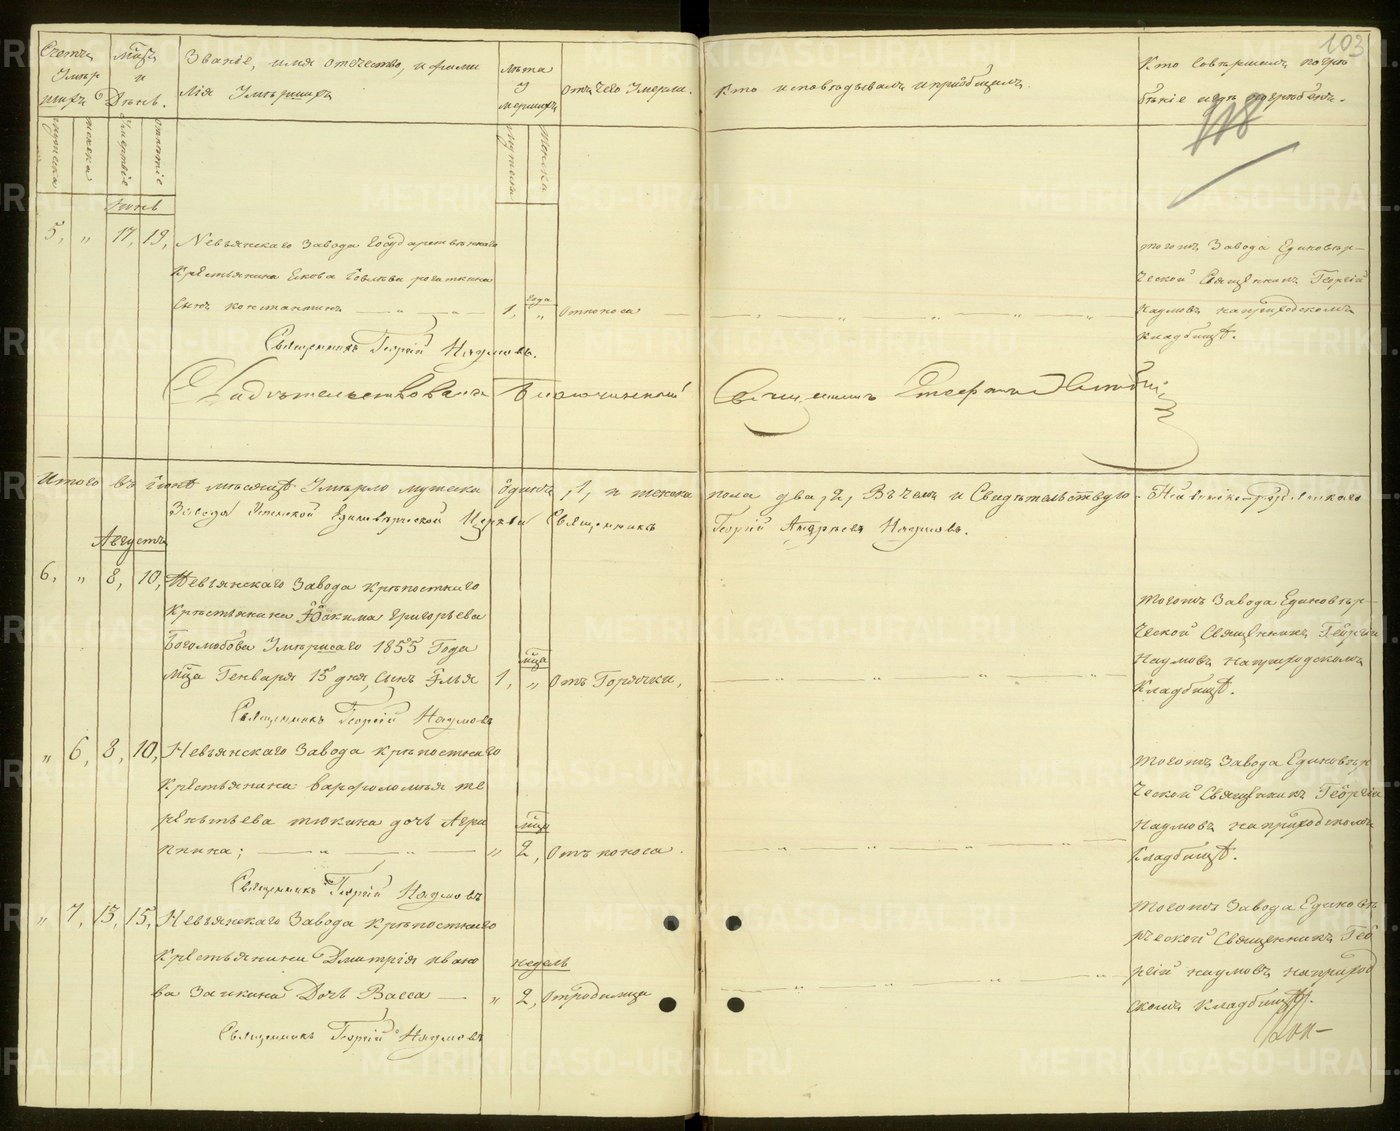 103
Счетъ Умер шихъ
Мцъ и День.
Званіе, имя отчество, и фами
лія Умершихъ
Лѣта Умершихъ
отъ чего Умерли.
Кто исповѣдывалъ и пріобщилъ.
Кто совершалъ погре
беніе и гдѣ погребенъ.
118
мужеска
женска
Умертвіе
мужеска
женска
5, „ 17, 19, Невьянскаго Завода Государственнаго
Крестьянина
сынъ Константинъ — „ — „ — 1, года „ отпоноса — „ — „ — „ — „ —
тогожъ Завода Единовѣр-
ческой Священникъ Георгій
Наумовъ наприходскомъ
кладбищѣ.
Священникъ Георгій Наумовъ.
Свидѣтельствовалъ Благочинный Священникъ
Итого въ мѣсяцѣ Умерло мужеска одинъ, 1, и женска пола два, 2, Въ чемъ и Свидѣтельствую
Завода Единовѣрческой Церкви Священникъ Георгій Андреевъ Наумовъ.
Августъ
6, „ 8, 10, Невьянскаго Завода крѣпостнаго
Крестьянина Григорьева
Боголюбова Умершаго 1855 Года
мца Генваря 15 дня, сынъ Илья 1, мца „ отъ Горячки,
тогожъ Завода Единовѣр-
ческой Священникъ Георгій
Наумовъ наприходскомъ
Кладбищѣ.
Священникъ Георгій Наумовъ
„ 6, 8, 10, Невьянскаго Завода крѣпостнаго
Крестьянина варфоломѣя те
рентьева тюкина дочь Агри
пина; — „ — „ — „ 2, мца отъ поноса.
тогожъ Завода Единовѣр
ческой Священникъ Георгій
Наумовъ наприходскомъ
Кладбищѣ.
Священникъ Георгій Наумовъ
„ 7, 13, 15, Невьянскаго Завода крѣпостнаго
Крестьянина Дмитрія ивано
ва Заикина Дочь Васса — „ 2, недель отродимца
тогожъ Завода Единовѣ
рческой Священникъ Гео
ргій наумовъ наприход
скомъ кладбищѣ.
Священникъ Георгій Наумовъ
METRIKI.GASO-URAL.RU